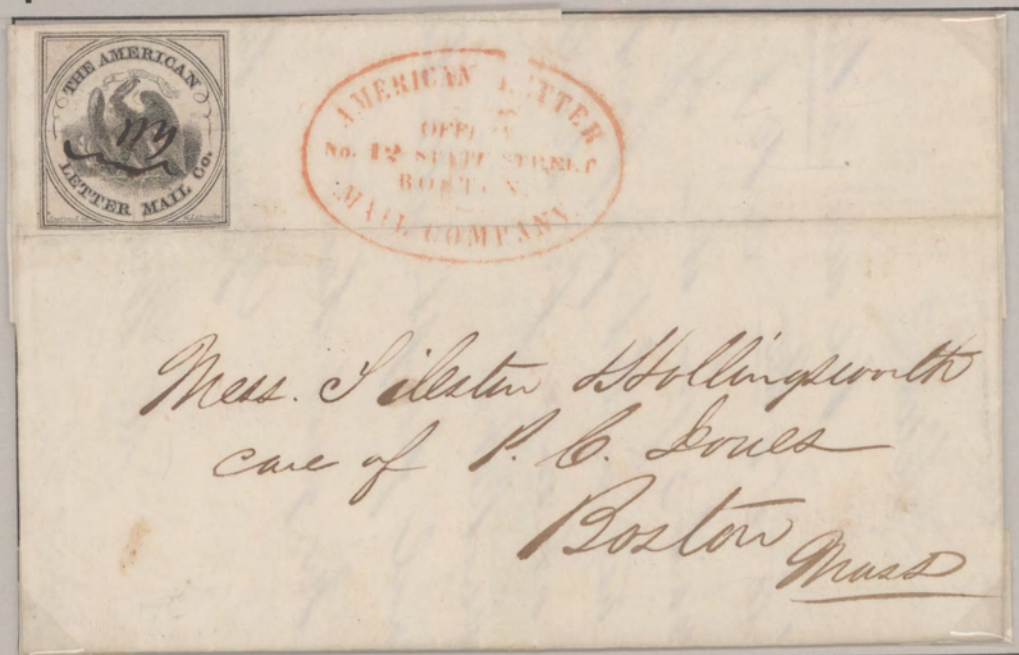 THE AMERICAN
LETTER MAIL Co.
AMERICAN LETTER
OFFICE
No. 12 STATE STREET
BOSTON.
MAIL COMPANY.
Mess. Tileston & Hollingsworth
care of P. C. Jones
Boston
Mass